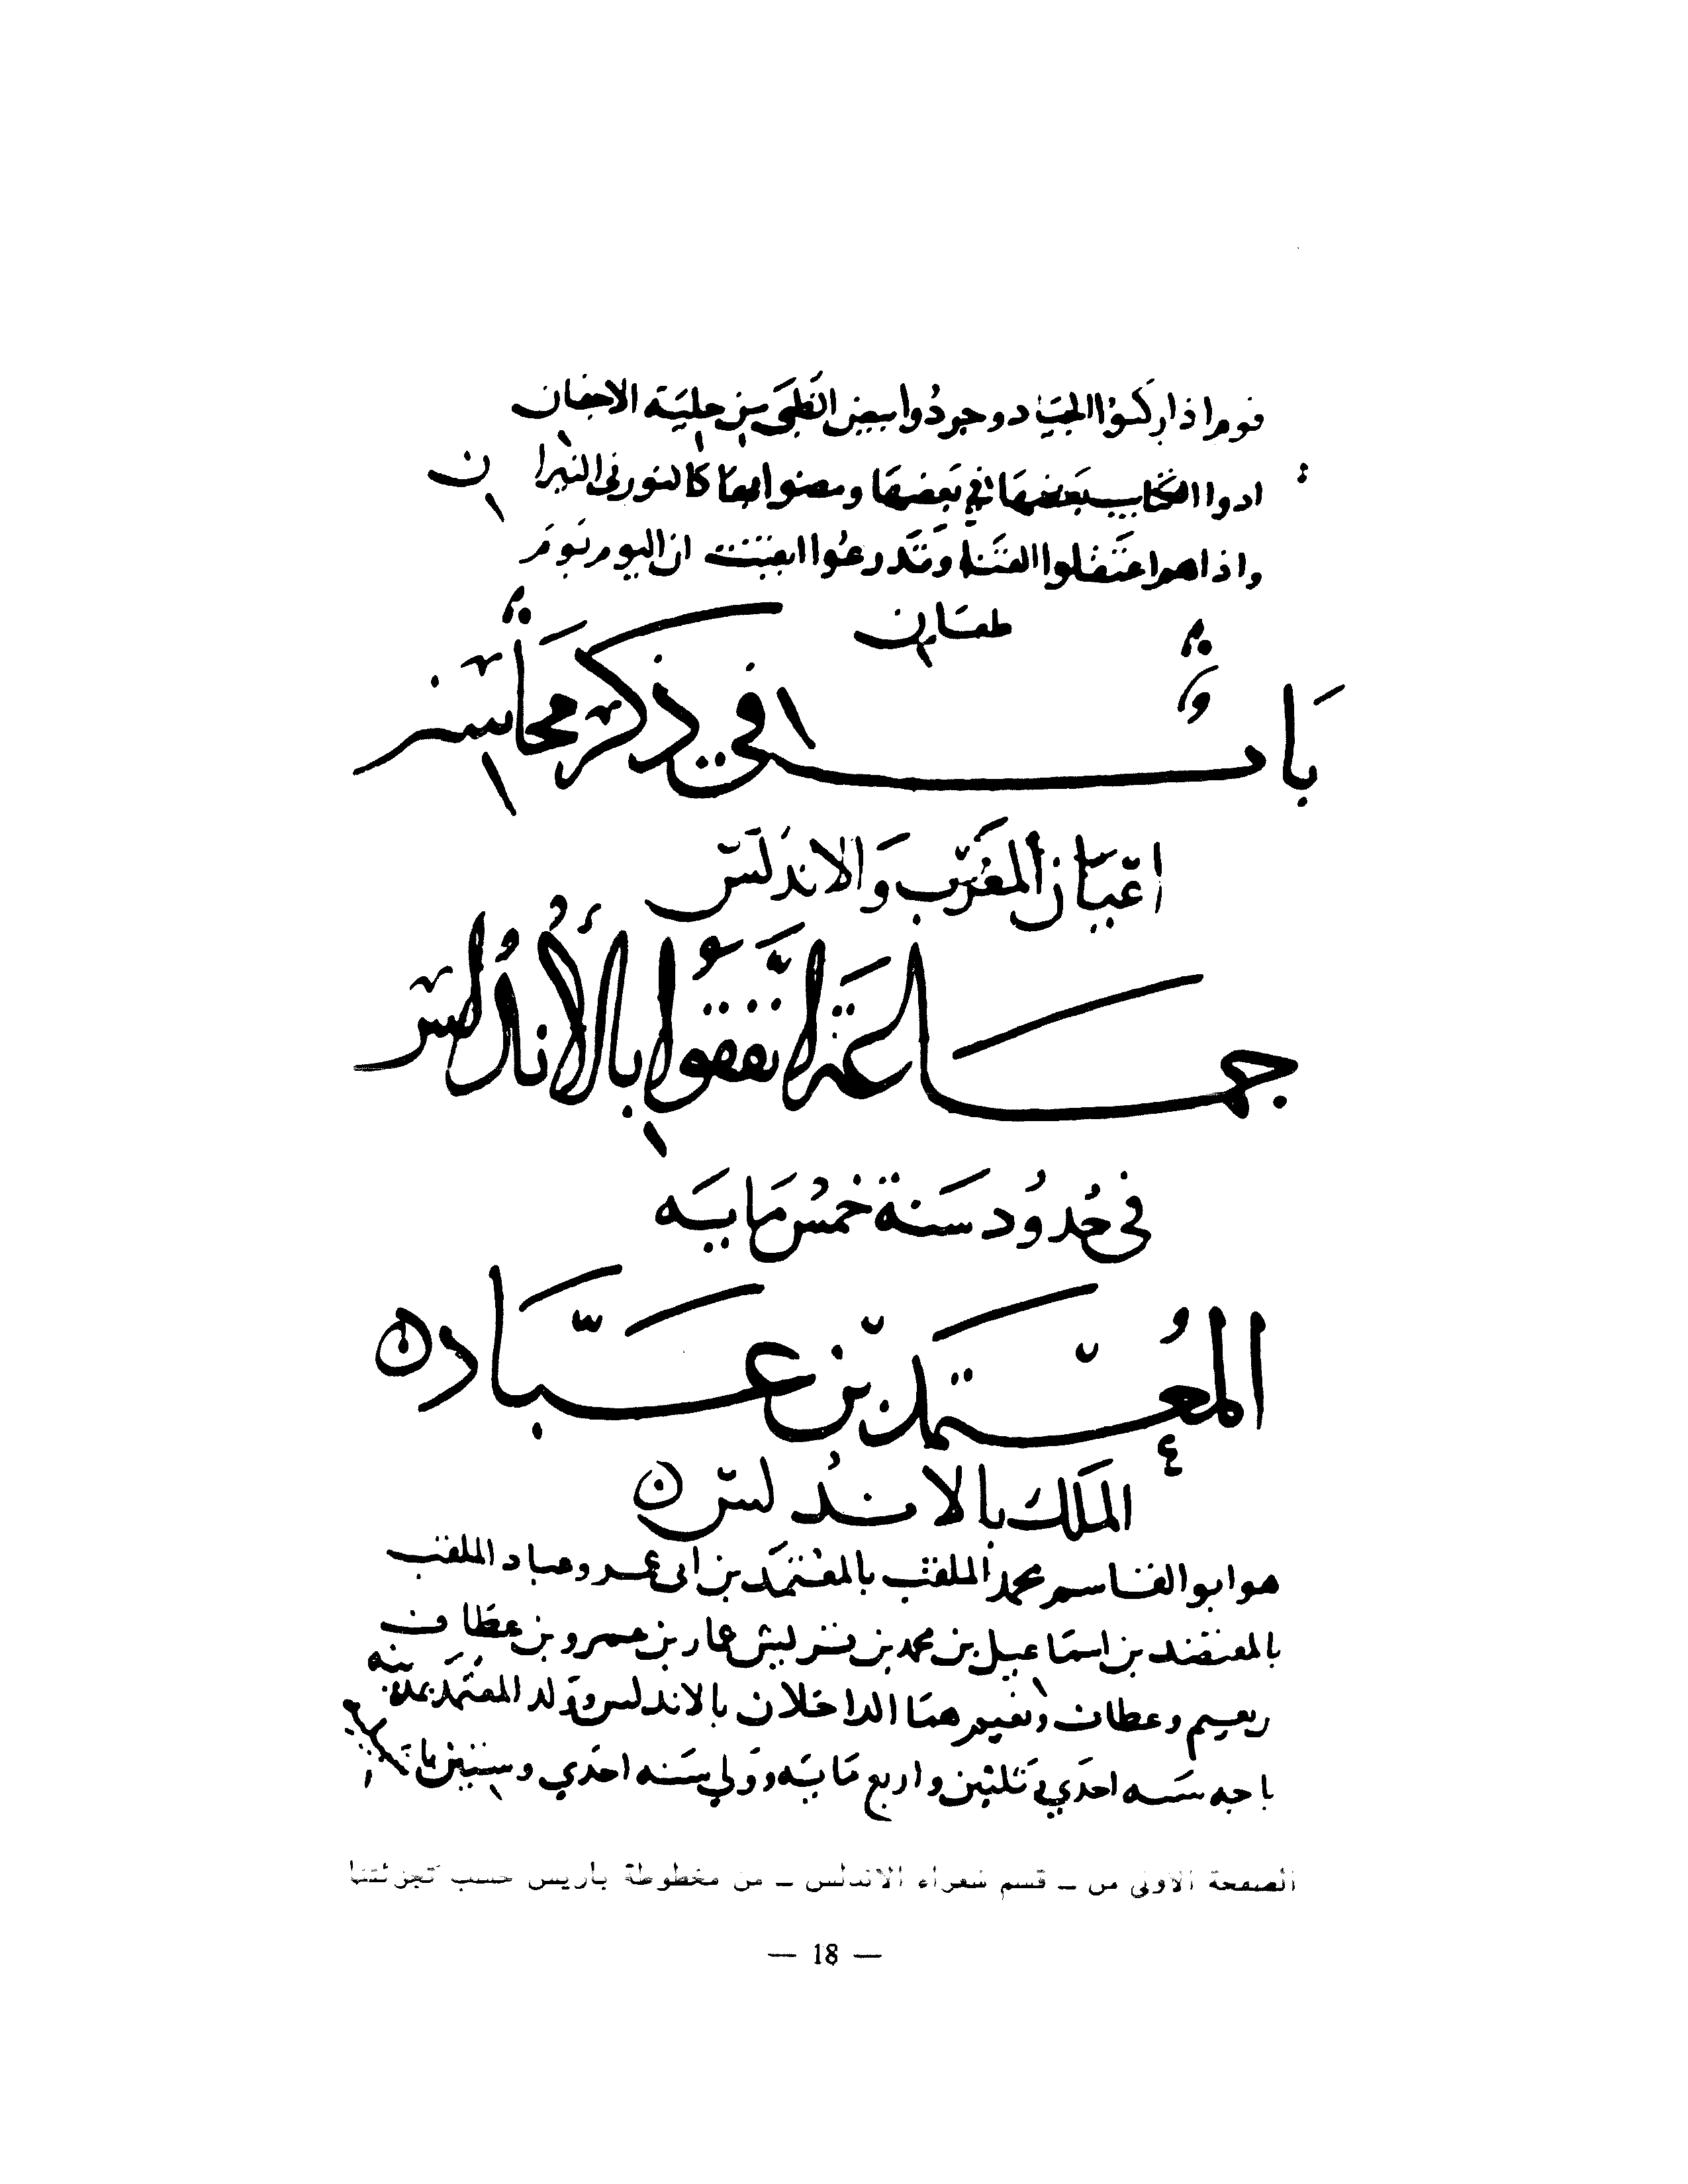 قوم اذا ركبوا الجياد وجردوا بيض الظبى من حلية الاجفان
ادوا الكتايب بعضها في بعضها ومضوا بها كالنور في النيران
واذا هم اعتقلوا القنا وتدرعوا ايقنت ان اليوم يوم
طعان
باب في ذكر محاسن
اعيان المغرب والاندلس
جماعة اتفقوا بالأندلس
في حدود سنة خمس مايه
المعتمد بن عباد
الملك بالاندلس
هو ابو القاسم محمد الملقب بالمعتمد بن ابي عمرو عباد الملقب
بالمعتضد بن اسماعيل بن محمد بن قريش عمار بن عمرو بن عطاف
نعيم وعطاف ونعيم هما الداخلان بالاندلس وولد المعتمد بمدينه
باجه سنه احدي وثلثين واربع مايه وولي سنه احدي وستين
الصفحة الاولى من – قسم شعراء الاندلس – من مخطوطة باريس حسب تجزئتنا
— 18 —